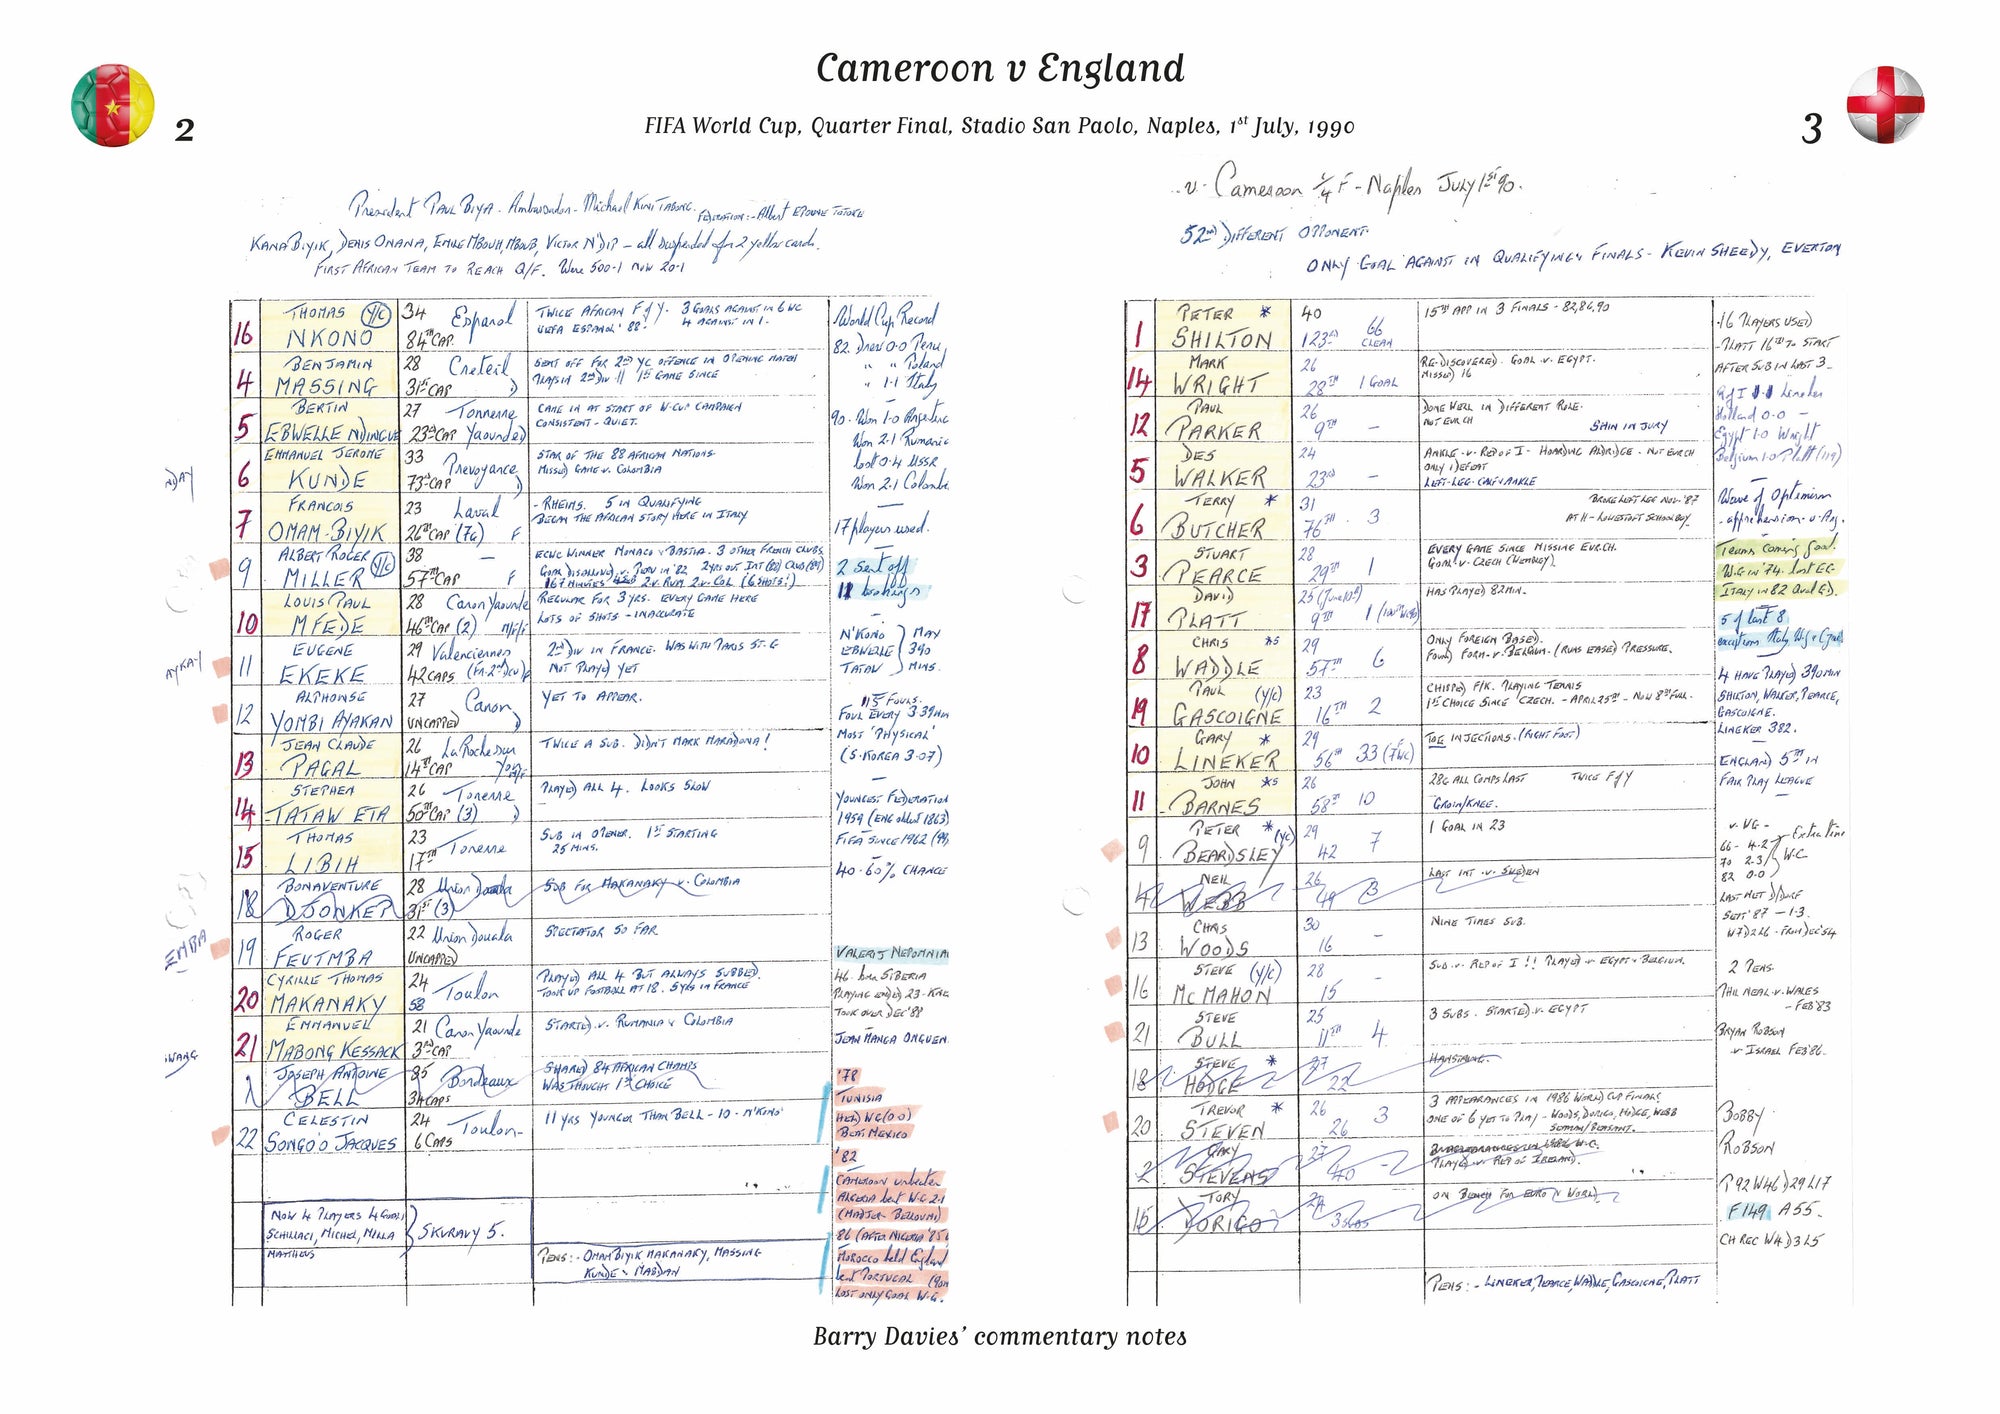 Cameroon v England
FIFA World Cup, Quarter Final, Stadio San Paolo, Naples, 1st July, 1990
2
3
President PAUL BIYA. Ambassador - Michael KINI TABONG. FEDERATION:- Albert
KANA BIYIK, DENIS ONANA, EMILE MBOUH MBOUB, VICTOR N'DIP - all suspended for 2 yellow cards.
FIRST AFRICAN TEAM TO REACH Q/F. Were 500-1 now 20-1
16 THOMAS NKONO Y/C 34 Espanol 84TH CAP TWICE AFRICAN F of Y. 3 GOALS AGAINST IN 6 WC
UEFA ESPANOL '88. 4 AGAINST IN 1.
4 BENJAMIN MASSING 28 Creteil 31ST CAP D SENT OFF FOR 2ND YC OFFENCE IN OPENING MATCH
PLAYS IN 2ND DIV 1ST GAME SINCE
5 BERTIN EBWELLE NDINGUE 27 Tonnerre Yaounde D 23RD CAP CAME IN AT START OF W-CUP CAMPAIGN
CONSISTENT - QUIET.
NDAY
6 EMMANUEL JEROME KUNDE 33 Prevoyance 73RD CAP D STAR OF THE 88 AFRICAN NATIONS
MISSED GAME v. COLOMBIA
7 FRANCOIS OMAM-BIYIK 23 Laval 26TH CAP (7G) F - RHEIMS. 5 IN QUALIFYING
BEGAN THE AFRICAN STORY HERE IN ITALY
9 ALBERT ROGER MILLER Y/C 38 - 57TH CAP F ECUC WINNER MONACO v BASTIA. 3 OTHER FRENCH CLUBS
GOAL DISALLOWED v. PERU IN '82 2YRS OUT INT (88) CLUB (89)
167 MINUTES 2 v. RUM 2 v. COL (6 SHOTS!)
10 LOUIS PAUL MFEDE 28 Canon Yaounde 46TH CAP (2) M/F REGULAR FOR 3 YRS. EVERY GAME HERE
LOTS OF SHOTS - INACCURATE
11 EUGENE EKEKE 29 Valenciennes 42 CAPS (FR. 2ND DIV) F 2ND DIV IN FRANCE. WAS WITH PARIS ST. G
NOT PLAYED YET
AYKA-Y
12 ALPHONSE YOMBI AYAKAN 27 Canon UNCAPPED D YET TO APPEAR.
13 JEAN CLAUDE PAGAL 26 La Roche sur Yon 14TH CAP TWICE A SUB. DIDN'T MARK MARADONA!
14 STEPHEN TATAW ETA 26 Tonerre 50TH CAP (3) D PLAYED ALL 4. LOOKS SLOW
15 THOMAS LIBIH 23 Tonerre 17TH SUB IN OPENER. 1ST STARTING
25 MINS.
18 BONAVENTURE DJONKEP 28 Union Douala 31ST (3) SUB FOR MAKANAKY v. COLOMBIA
EMBA
19 ROGER FEUTMBA 22 Union Douala UNCAPPED SPECTATOR SO FAR
20 CYRILLE THOMAS MAKANAKY 24 Toulon 58 PLAYED ALL 4 BUT ALWAYS SUBBED.
TOOK UP FOOTBALL AT 18. 5 YRS IN FRANCE
21 EMMANUEL MABONG KESSACK 21 Canon Yaounde 3RD CAP STARTED v. RUMANIA & COLOMBIA
1 JOSEPH ANTOINE BELL 35 Bordeaux 34 CAPS SHARED 84 AFRICAN CHAMPS
WAS THOUGHT 1ST CHOICE
22 CELESTIN SONGO'O JACQUES 24 Toulon- 6 CAPS 11 YRS YOUNGER THAN BELL - 10 - N'KONO
NOW 4 PLAYERS 4 GOALS
SCHILLACI, MICHEL, MILLA
MATTHEUS
SKURAVY 5.
PENS:- OMAM BIYIK MAKANAKY, MASSING
KUNDE & MABDAN
World Cup Record
82. Drew 0-0 Peru
" " Poland
" 1-1 Italy
90. Won 1-0 Argentina
Won 2-1 Rumania
lost 0-4 USSR
Won 2-1 Colombia
17 players used.
2 sent off
11 bookings
N'KONO
EBWELLE
TATAW
MAX
390
MINS.
115 FOULS.
FOUL EVERY 3.39 MIN
MOST 'PHYSICAL'
(S. KOREA 3.07)
YOUNGEST FEDERATION
1959 (ENG OLDEST 1863)
FIFA SINCE 1962
40-60% CHANCE
VALERIJ NEPOMNIA
46. born SIBERIA
PLAYING ENDED 23 - KNEE
TOOK OVER DEC '88
JEAN MANGA ONGUEN
'78
TUNISIA
HELD WG (0-0)
BEAT MEXICO
'82
CAMEROON unbeaten
ALGERIA beat W.G 2-1
(MADJER BELLOUMI)
86 (AFTER NIGERIA '85)
MOROCCO held England
beat PORTUGAL
LOST ONLY GOAL W-G.
v. Cameroon 1/4 F - Naples July 1st 90.
52ND DIFFERENT OPPONENT.
ONLY GOAL AGAINST IN QUALIFYING & FINALS - KEVIN SHEEDY, EVERTON
1 PETER SHILTON * 40 123RD 66 CLEAN 15TH APP IN 3 FINALS - 82, 86, 90
14 MARK WRIGHT 26 28TH 1 GOAL RE-DISCOVERED. GOAL v. EGYPT.
MISSED 16
12 PAUL PARKER 26 9TH - DONE WELL IN DIFFERENT ROLE.
NOT EURCH SHIN INJURY
5 DES WALKER 24 23RD - ANKLE - v. REP OF I - HOARDING ALDRIDGE - NOT EURCH
ONLY 1 DEFEAT
LEFT-LEG - CALF & ANKLE
6 TERRY BUTCHER * 31 76TH. 3 BROKE LEFT LEG NOV. '87
AT H - LOWESTOFT SCHOOLBOY
3 STUART PEARCE 28 29TH 1 EVERY GAME SINCE MISSING EUR.CH.
GOAL v. CZECH (WEMBLEY).
17 DAVID PLATT 25 (June 10th) 9TH 1 HAS PLAYED 82 MIN.
8 CHRIS WADDLE *S 29 57TH 6 ONLY FOREIGN BASED.
FOUND FORM v. BELGIUM. (RUNS EASED) PRESSURE.
19 PAUL GASCOIGNE (Y/C) 23 16TH 2 CHIPPED F/K. PLAYING TENNIS
1ST CHOICE SINCE CZECH. - APRIL 25TH - NOW 8TH FULL.
10 GARY LINEKER * 29 56TH 33 (7 WC) TOE INJECTIONS. (RIGHT FOOT)
11 JOHN BARNES *S 26 58TH 10 28G ALL COMPS LAST TWICE F of Y
GROIN/KNEE.
9 PETER BEARDSLEY * (Y/C) 29 42 7 1 GOAL IN 23
4 NEIL WEBB 26 19 3 LAST INT. v. SWEDEN
13 CHRIS WOODS 30 16 - NINE TIMES SUB.
16 STEVE McMAHON (Y/C) 28 15 - SUB. v. REP OF I !! PLAYED v EGYPT v BELGIUM.
21 STEVE BULL 25 11TH 4 3 SUBS. STARTED v. EGYPT
18 STEVE HODGE * 27 22 HAMSTRING.
20 TREVOR STEVEN * 26 26 3 3 APPEARANCES IN 1986 WORLD CUP FINALS
ONE OF 6 YET TO PLAY - WOODS, DORIGO, HODGE, WEBB
SEAMAN/BEASANT.
2 GARY STEVENS 27 40 - PLAYED v REP OF IRELAND.
15 TONY DORIGO 24 3 SUBS ON BENCH FOR EURO & WORLD
PENS:- LINEKER, PEARCE, WADDLE, GASCOIGNE, PLATT
16 PLAYERS USED
- PLATT 16TH TO START
AFTER SUB IN LAST 3
R of I 1-1 Lineker
Holland 0-0 -
Egypt 1-0 Wright
Belgium 1-0 Platt (119)
Wave of Optimism
- apprehension - v. Arg.
Teams Coming Good.
W.G in '74. lost EG
ITALY in 82
5 of last 8
exceptions Italy W.G &
4 HAVE PLAYED 390 MIN
SHILTON, WALKER, PEARCE,
GASCOIGNE.
LINEKER 382.
ENGLAND 5TH IN
FAIR PLAY LEAGUE
v. WG -
66 - 4-2 Extra time
70 2-3 W.C
82 0-0
LAST MET D/DORF
SEPT '87 - 1-3.
2 PENS.
PHIL NEAL v. WALES
- FEB '83
BRYAN ROBSON
v ISRAEL FEB '86.
BOBBY
ROBSON
P92 W46 D29 L17
F149 A55.
CH REC W4 D3 L5
Barry Davies' commentary notes